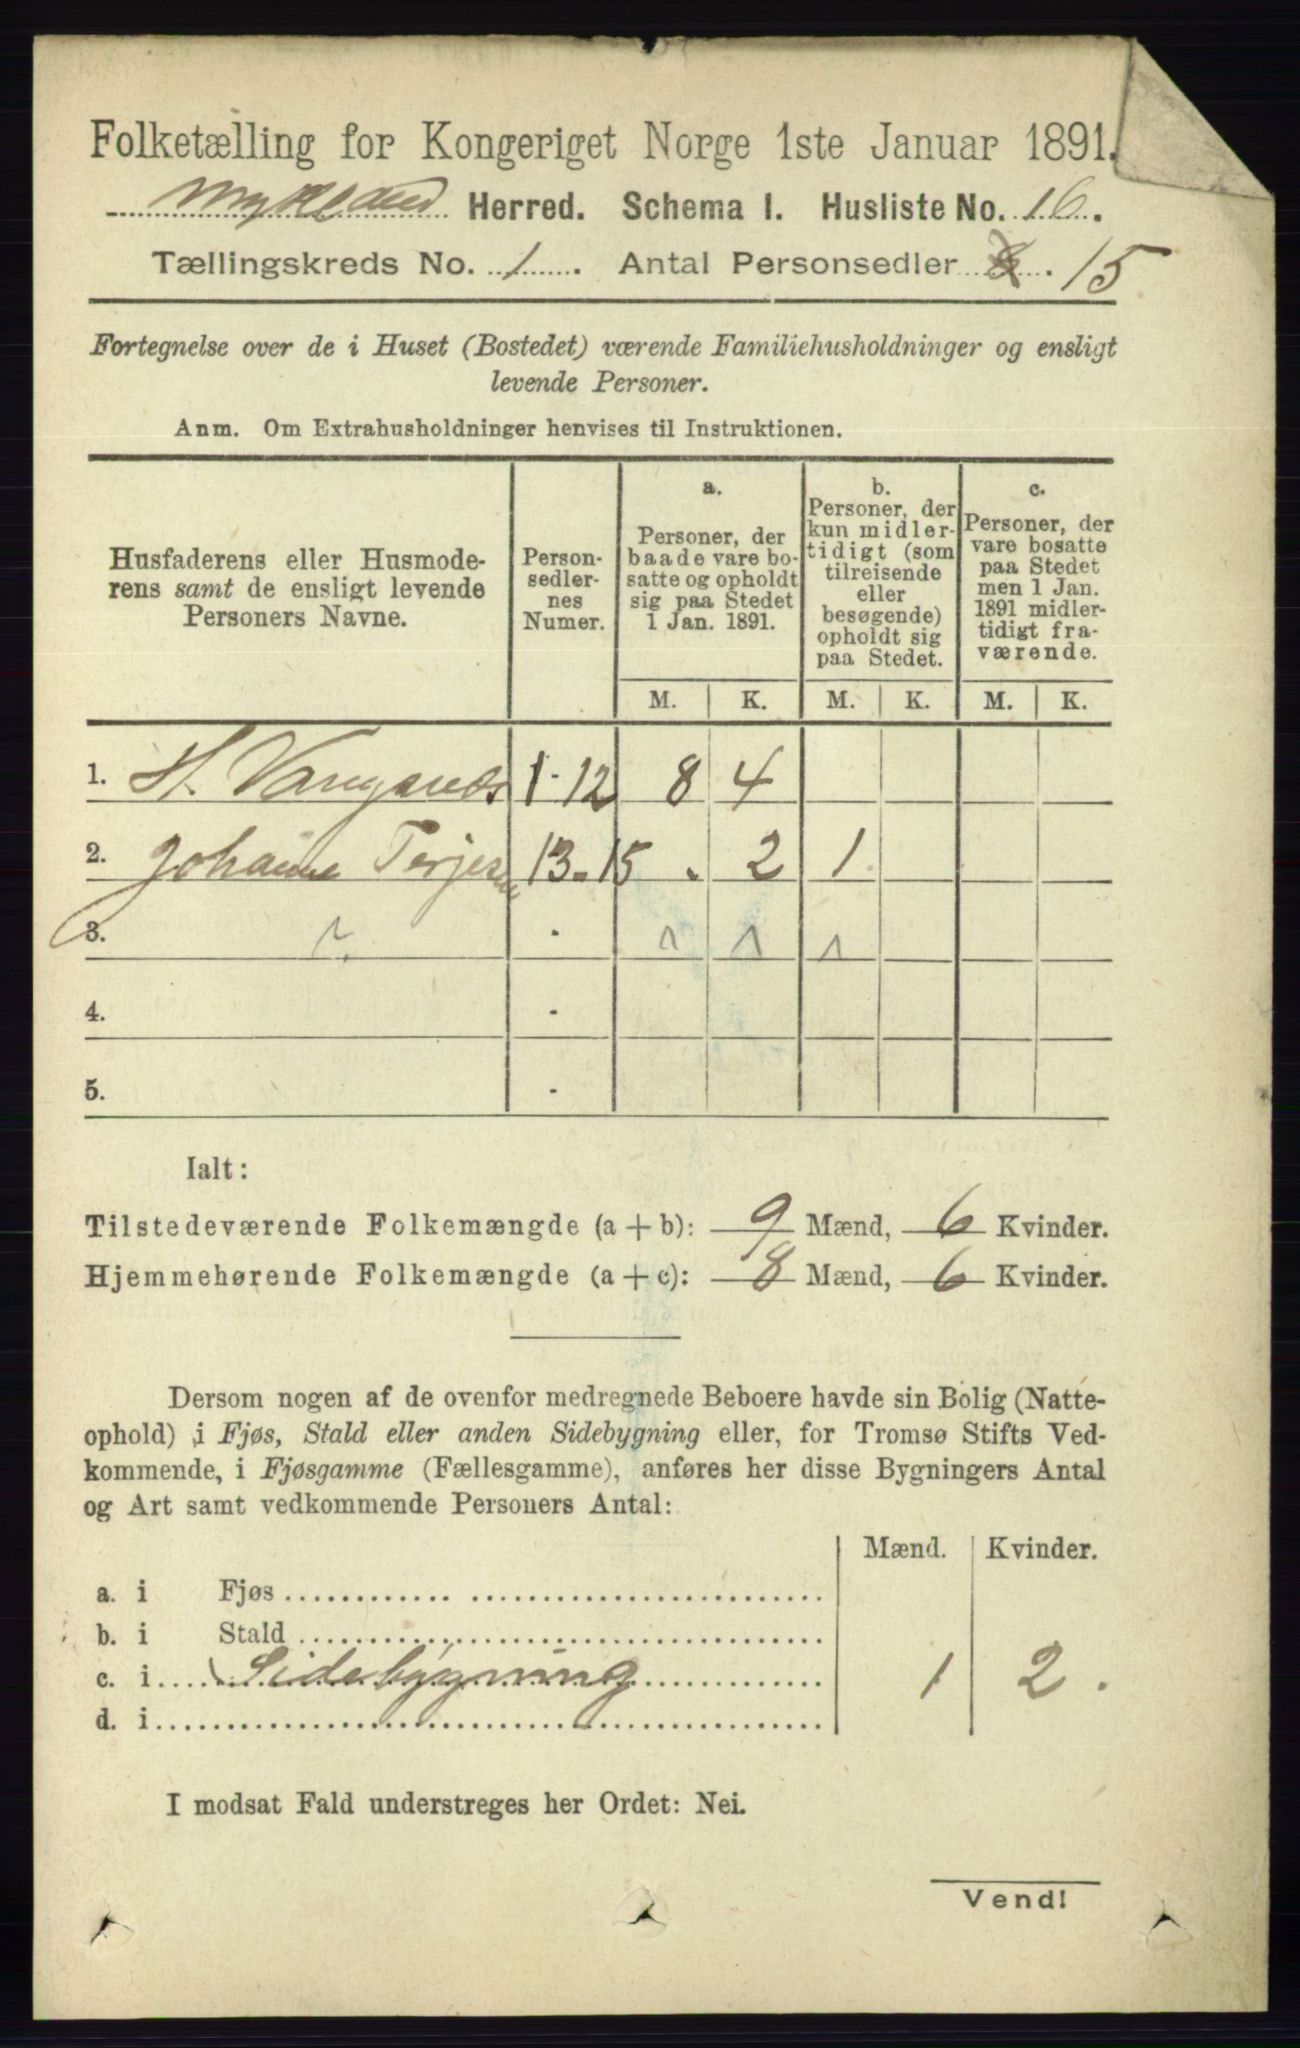 Folketælling for Kongeriget Norge 1ste Januar 1891.
Mykland Herred. Schema I. Husliste No. 16.
Tællingskreds No. 1. Antal Personsedler 8. 15
Fortegnelse over de i Huset (Bostedet) værende Familiehusholdninger og ensligt
levende Personer.
Anm. Om Extrahusholdninger henvises til Instruktionen.
Husfaderens eller Husmode-
rens samt de ensligt levende
Personers Navne.
Person-
sedler-
nes
Numer.
a.
Personer, der
baade vare bo-
satte og opholdt
sig paa Stedet
1 Jan. 1891.
b.
Personer, der
kun midler-
tidigt (som
tilreisende
eller
besøgende)
opholdt sig
paa Stedet.
c.
Personer, der
vare bosatte
paa Stedet
men 1 Jan.
1891 midler-
tidigt fra-
værende.
M. K. M. K. M. K.
1. H. 1-12 8 4
2. Johanne 13-15 . 2 1
3. -
4. -
5. -
Ialt:
Tilstedeværende Folkemængde (a+b): 9 Mænd, 6 Kvinder.
Hjemmehørende Folkemængde (a+c): 8 Mænd, 6 Kvinder.
Dersom nogen af de ovenfor medregnede Beboere havde sin Bolig (Natte-
ophold) i Fjøs, Stald eller anden Sidebygning eller, for Tromsø Stifts Ved-
kommende, i Fjøsgamme (Fællesgamme), anføres her disse Bygningers Antal
og Art samt vedkommende Personers Antal:
Mænd. Kvinder.
a. i Fjøs
b. i Stald
c. i Sidebygning 1 2.
d. i
I modsat Fald understreges her Ordet: Nei.
Vend!